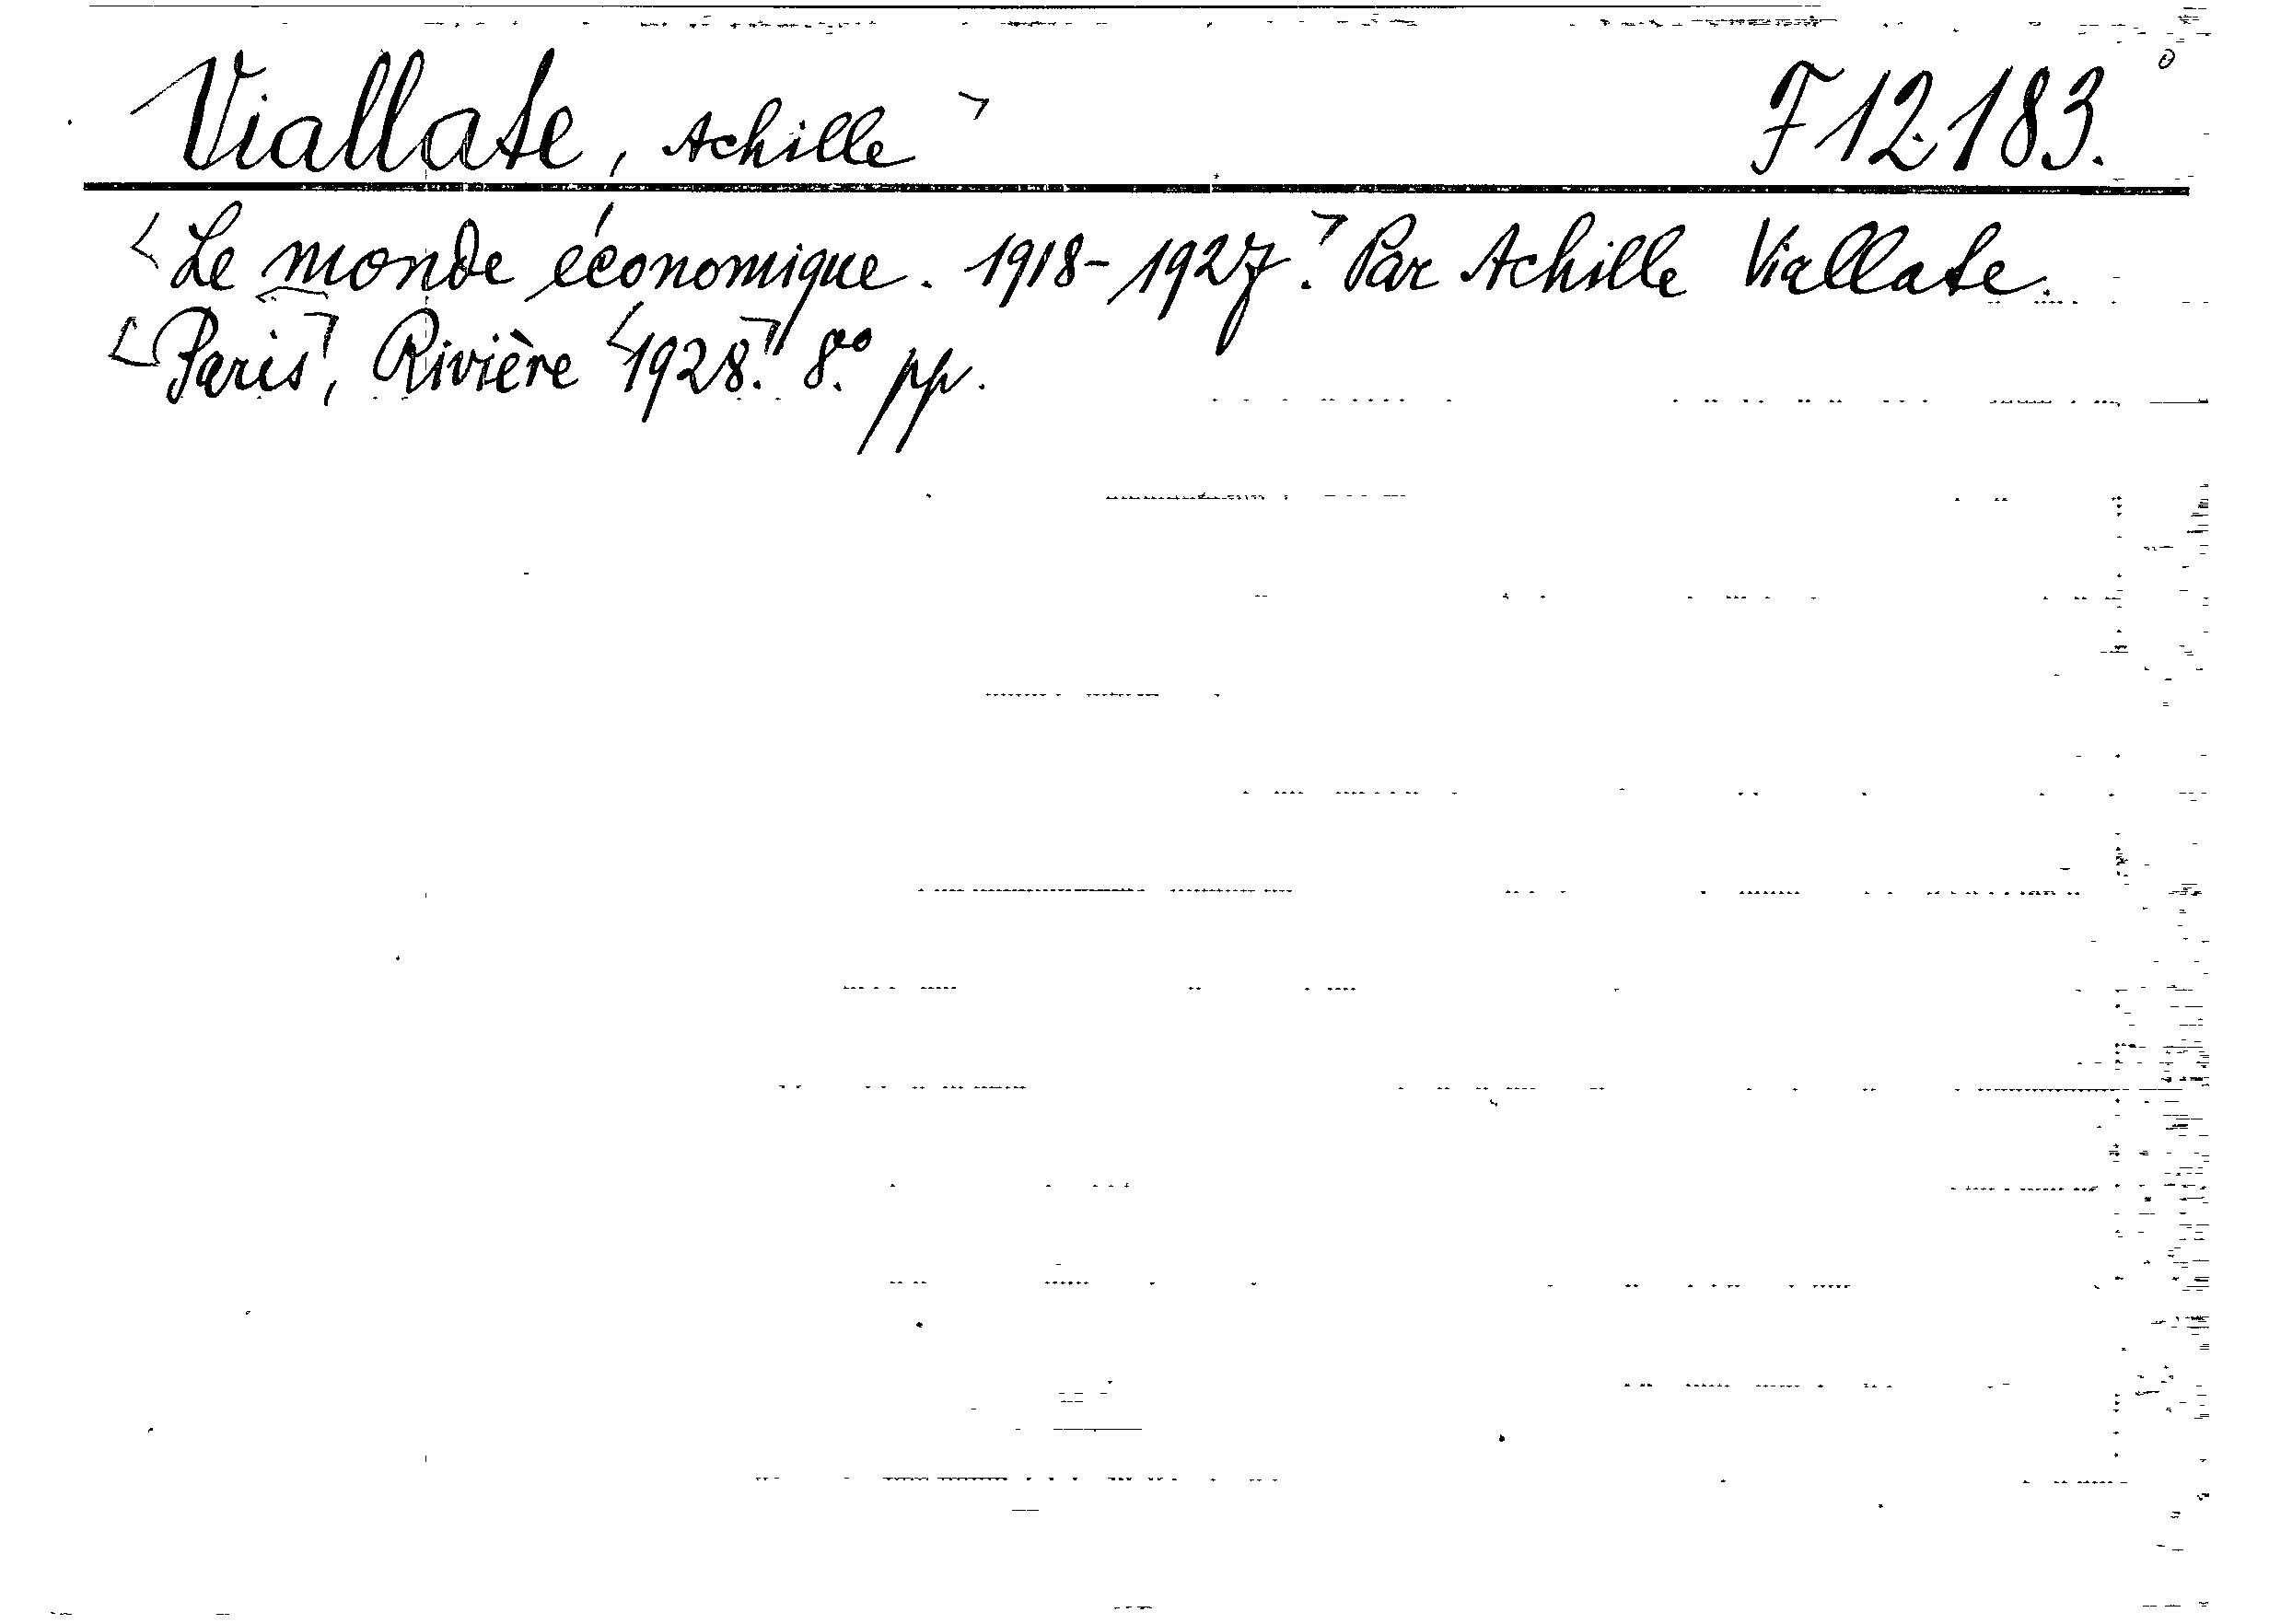 Viallate, Achille F 12.183.
Le monde économique. 1918-1927. Par Achille Viallate.
Paris, Rivière 1928. 8vo pp.